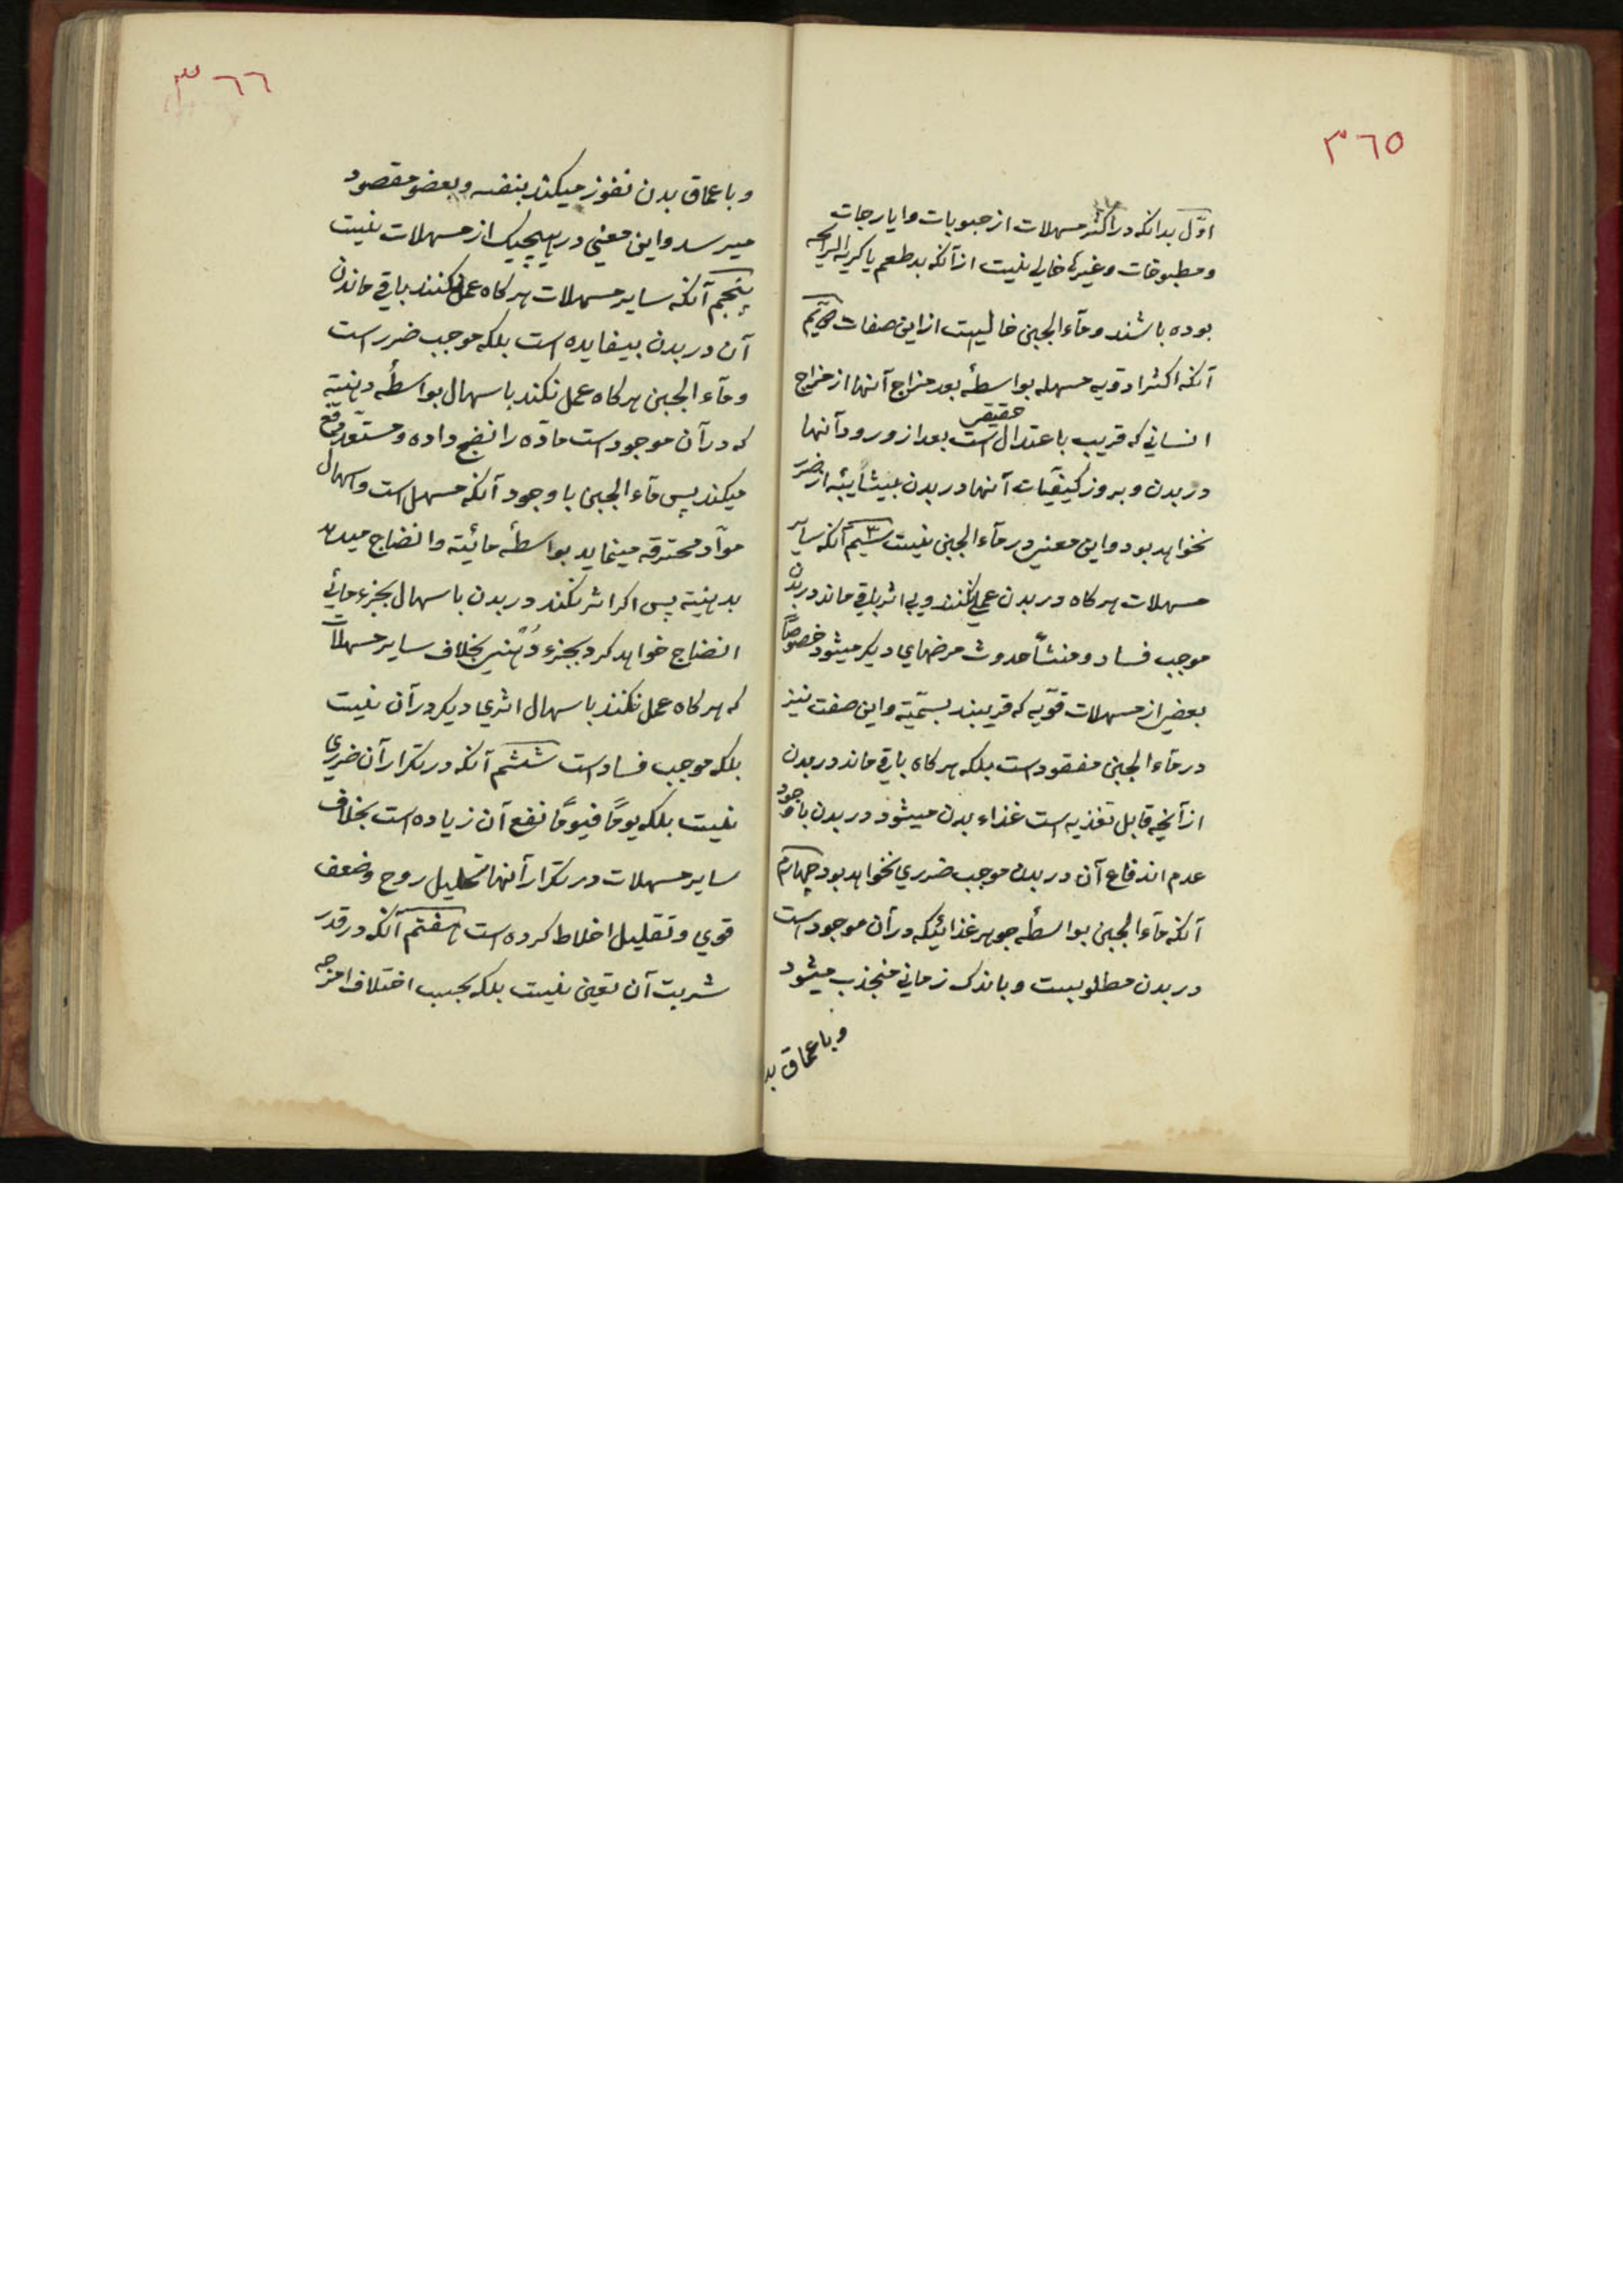 ٣٦٥
اوّل بدانکه در اکثر مسهلات از حبوبات و ایارجات
و مطبوخات و غیرها خالی نیست از آنکه بد طعم یا کریه الرایحه
بوده باشند و مآء الجبن خالیست از این صفات دویّم
آنکه اکثر ادویه مسهله بواسطهٔ بعد مزاج آنها از مزاج
انسانی که قریب باعتدال حقیقی است بعد از ورود آنها
در بدن و بروز کیفیّات آنها در بدن بیشائبه از ضرر
نخواهد بود و این معنی در مآء الجبن نیست سیّم آنکه سایر
مسهلات هر کاه در بدن عمل نکنند و بی اثر باقی ماند در بدن
موجب فساد و منشأ حدوث مرضهای دیکر میشود خصوصاً
بعضی از مسهلات قویّه که قریبند بسمّیّة و این صفت نیز
در مآء الجبن مفقود است بلکه هر کاه باقی ماند در بدن
از آنچه قابل تغذیه است غذاء بدن میشود در بدن با وجود
عدم اندفاع آن در بدن موجب ضرری نخواهد بود چهارم
آنکه مآء الجبن بواسطهٔ جوهر غذائیکه در آن موجود است
در بدن مطلوبست و باندک زمانی منجذب میشود
و باعماق بد
٣٦٦
و باعماق بدن نفوز میکند بنفسه و بعضو مقصود
میرسد و این معنی در هیچیک از مسهلات نیست
پنجم آنکه سایر مسهلات هر کاه عمل نکنند باقی ماندن
آن در بدن بیفایده است بلکه موجب ضرر است
و مآء الجبن هر کاه عمل نکند باسهال بواسطهٔ دهنیّة
که در آن موجود است مادّه را نضج داده و مستعد دفع
میکند پس مآء الجبن با وجود آنکه مسهل است و اسهال
موآدّ محترقه مینماید بواسطهٔ مائیّة و انضاج میدهد
بدهنیّة پس اکر اثر نکند در بدن باسهال بجزء مائی
انضاج خواهد کرد بجزء دُهنی بخلاف سایر مسهلات
که هر کاه عمل نکنند باسهال اثری دیکر در آن نیست
بلکه موجب فساد است ششم آنکه در تکرار آن ضرری
نیست بلکه یومًا فیومًا نفع آن زیاده است بخلاف
سایر مسهلات در تکرار آنها تحلیل روح و ضعف
قوی و تقلیل اخلاط کرده است هفتم آنکه در قدر
شربت آن تعین نیست بلکه بحسب اختلاف امزجه